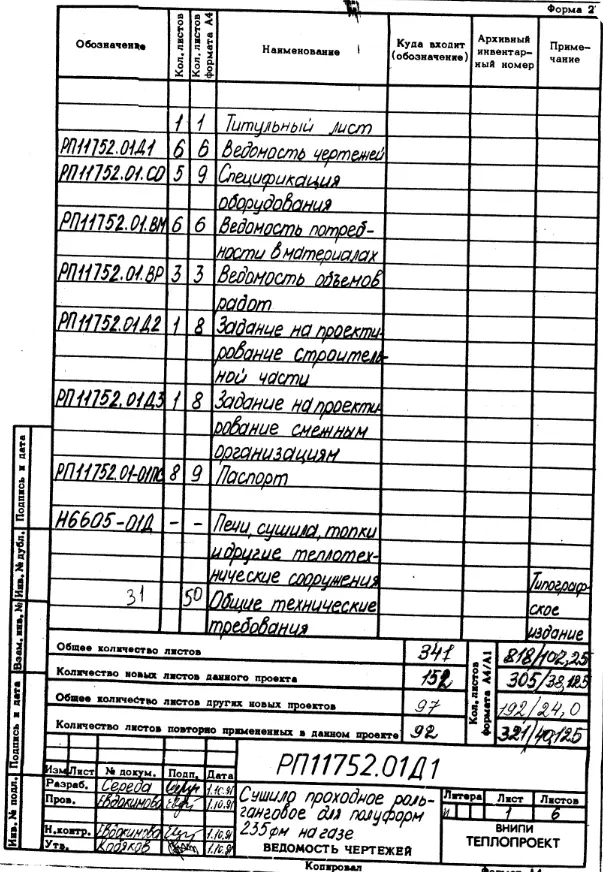 Форма 2
Обозначение Кол. листов Кол. листов формата А4 Наименование Куда входит (обозначение) Архивный инвентарный номер Примечание
1 1 Титульный лист
РП11752.01Д1 6 6 Ведомость чертежей
РП11752.01.СО 5 9 Спецификация
оборудования
РП11752.01.ВМ 6 6 Ведомость потреб-
ности в материалах
РП11752.01.ВР 3 3 Ведомость объемов
работ
РП11752.01Д2 1 8 Задание на проекти-
рование строитель-
ной части
РП11752.01Д3 1 8 Задание на проекти-
рование смежным
организациям
РП11752.01-01ПС 8 9 Паспорт
Н6605-01Д - - Печи, сушила, топки
и другие теплотех-
нические сооружения Типограф-
31 50 Общие технические ское
требования издание
Общее количество листов 341 Кол. листов формата А4/А1 818/102,25
Количество новых листов данного проекта 152 305/38,125
Общее количество листов других новых проектов 97 192/24,0
Количество листов повторно примененных в данном проекте 92 321/40,125
Подпись и дата
Инв. № дубл.
Взам. инв. №
Подпись и дата
Инв. № подл.
РП11752.01Д1
Изм Лист № докум. Подп. Дата
Разраб. Середа 1.10.91
Пров. Евдокимова 1.10.91
Н.контр. Евдокимова 1.10.91
Утв. 1.10.91
Сушило проходное роль-
ганговое для полуформ
235 фм на газе
ВЕДОМОСТЬ ЧЕРТЕЖЕЙ
Литера Лист Листов
И 1 6
ВНИПИ
ТЕПЛОПРОЕКТ
Копировал
Формат А4